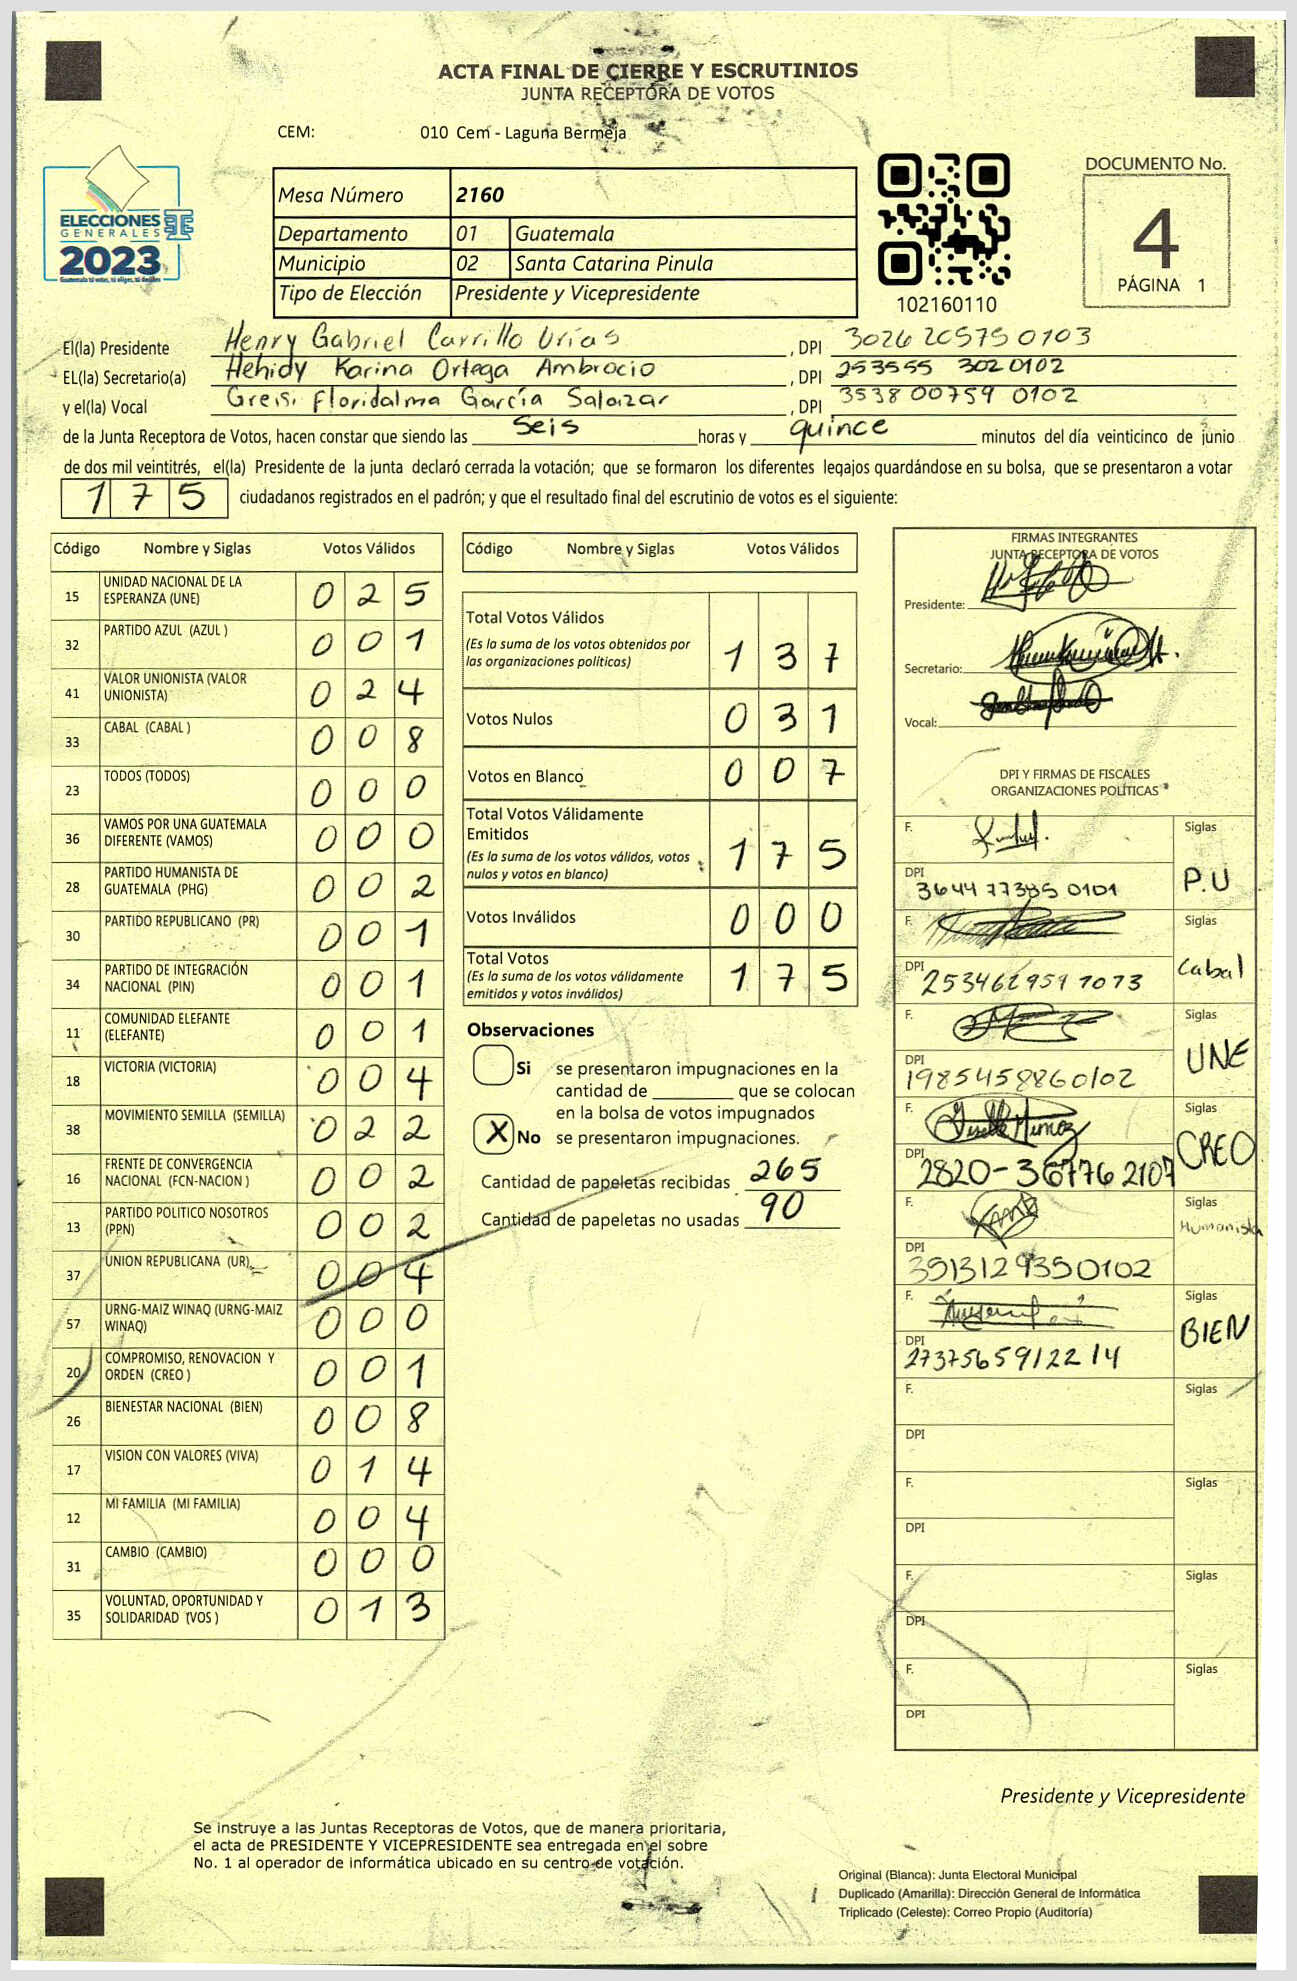 ACTA FINAL DE CIERRE Y ESCRUTINIOS
JUNTA RECEPTORA DE VOTOS
CEM: 010 Cem - Laguna Bermeja
ELECCIONES
GENERALES
2023
Guatemala tú votas, tú eliges, tú decides
Mesa Número 2160
Departamento 01 Guatemala
Municipio 02 Santa Catarina Pinula
Tipo de Elección Presidente y Vicepresidente
102160110
DOCUMENTO No.
4
PÁGINA 1
El(la) Presidente Henry Gabriel Carrillo Urías , DPI 3026205750103
EL(la) Secretario(a) Hehidy Karina Ortega Ambrocio , DPI 253555 302 0102
y el(la) Vocal Greisi Floridalma García Salazar , DPI 353800759 0102
de la Junta Receptora de Votos, hacen constar que siendo las seis horas y quince minutos del día veinticinco de junio
de dos mil veintitrés, el(la) Presidente de la junta declaró cerrada la votación; que se formaron los diferentes legajos quardándose en su bolsa, que se presentaron a votar
175 ciudadanos registrados en el padrón; y que el resultado final del escrutinio de votos es el siguiente:
Código Nombre y Siglas Votos Válidos
15 UNIDAD NACIONAL DE LA ESPERANZA (UNE) 0 2 5
32 PARTIDO AZUL (AZUL ) 0 0 1
41 VALOR UNIONISTA (VALOR UNIONISTA) 0 2 4
33 CABAL (CABAL ) 0 0 8
23 TODOS (TODOS) 0 0 0
36 VAMOS POR UNA GUATEMALA DIFERENTE (VAMOS) 0 0 0
28 PARTIDO HUMANISTA DE GUATEMALA (PHG) 0 0 2
30 PARTIDO REPUBLICANO (PR) 0 0 1
34 PARTIDO DE INTEGRACIÓN NACIONAL (PIN) 0 0 1
11 COMUNIDAD ELEFANTE (ELEFANTE) 0 0 1
18 VICTORIA (VICTORIA) 0 0 4
38 MOVIMIENTO SEMILLA (SEMILLA) 0 2 2
16 FRENTE DE CONVERGENCIA NACIONAL (FCN-NACION ) 0 0 2
13 PARTIDO POLITICO NOSOTROS (PPN) 0 0 2
37 UNION REPUBLICANA (UR) 0 0 4
57 URNG-MAIZ WINAQ (URNG-MAIZ WINAQ) 0 0 0
20 COMPROMISO, RENOVACION Y ORDEN (CREO ) 0 0 1
26 BIENESTAR NACIONAL (BIEN) 0 0 8
17 VISION CON VALORES (VIVA) 0 1 4
12 MI FAMILIA (MI FAMILIA) 0 0 4
31 CAMBIO (CAMBIO) 0 0 0
35 VOLUNTAD, OPORTUNIDAD Y SOLIDARIDAD (VOS ) 0 1 3
Código Nombre y Siglas Votos Válidos
Total Votos Válidos
(Es la suma de los votos obtenidos por las organizaciones políticas) 1 3 7
Votos Nulos 0 3 1
Votos en Blanco 0 0 7
Total Votos Válidamente Emitidos
(Es la suma de los votos válidos, votos nulos y votos en blanco) 1 7 5
Votos Inválidos 0 0 0
Total Votos
(Es la suma de los votos válidamente emitidos y votos inválidos) 1 7 5
Observaciones
Si se presentaron impugnaciones en la
cantidad de ________ que se colocan
en la bolsa de votos impugnados
X No se presentaron impugnaciones.
Cantidad de papeletas recibidas 265
Cantidad de papeletas no usadas 90
FIRMAS INTEGRANTES
JUNTA RECEPTORA DE VOTOS
Presidente:
Secretario:
Vocal:
DPI Y FIRMAS DE FISCALES
ORGANIZACIONES POLÍTICAS
F. Siglas
DPI 3644 77385 0101 P.U
F. Siglas
DPI 253462959 1073 Cabal
F. Siglas
DPI 1985458860102 UNE
F. Giselle Muñoz Siglas
DPI 2820-36776 2107 CREO
F. Siglas
DPI 3513129350102 Humanista
F. Siglas
DPI 2737565912214 BIEN
F. Siglas
DPI
F. Siglas
DPI
F. Siglas
DPI
F. Siglas
DPI
Presidente y Vicepresidente
Se instruye a las Juntas Receptoras de Votos, que de manera prioritaria,
el acta de PRESIDENTE Y VICEPRESIDENTE sea entregada en el sobre
No. 1 al operador de informática ubicado en su centro de votación.
Original (Blanca): Junta Electoral Municipal
Duplicado (Amarilla): Dirección General de Informática
Triplicado (Celeste): Correo Propio (Auditoría)